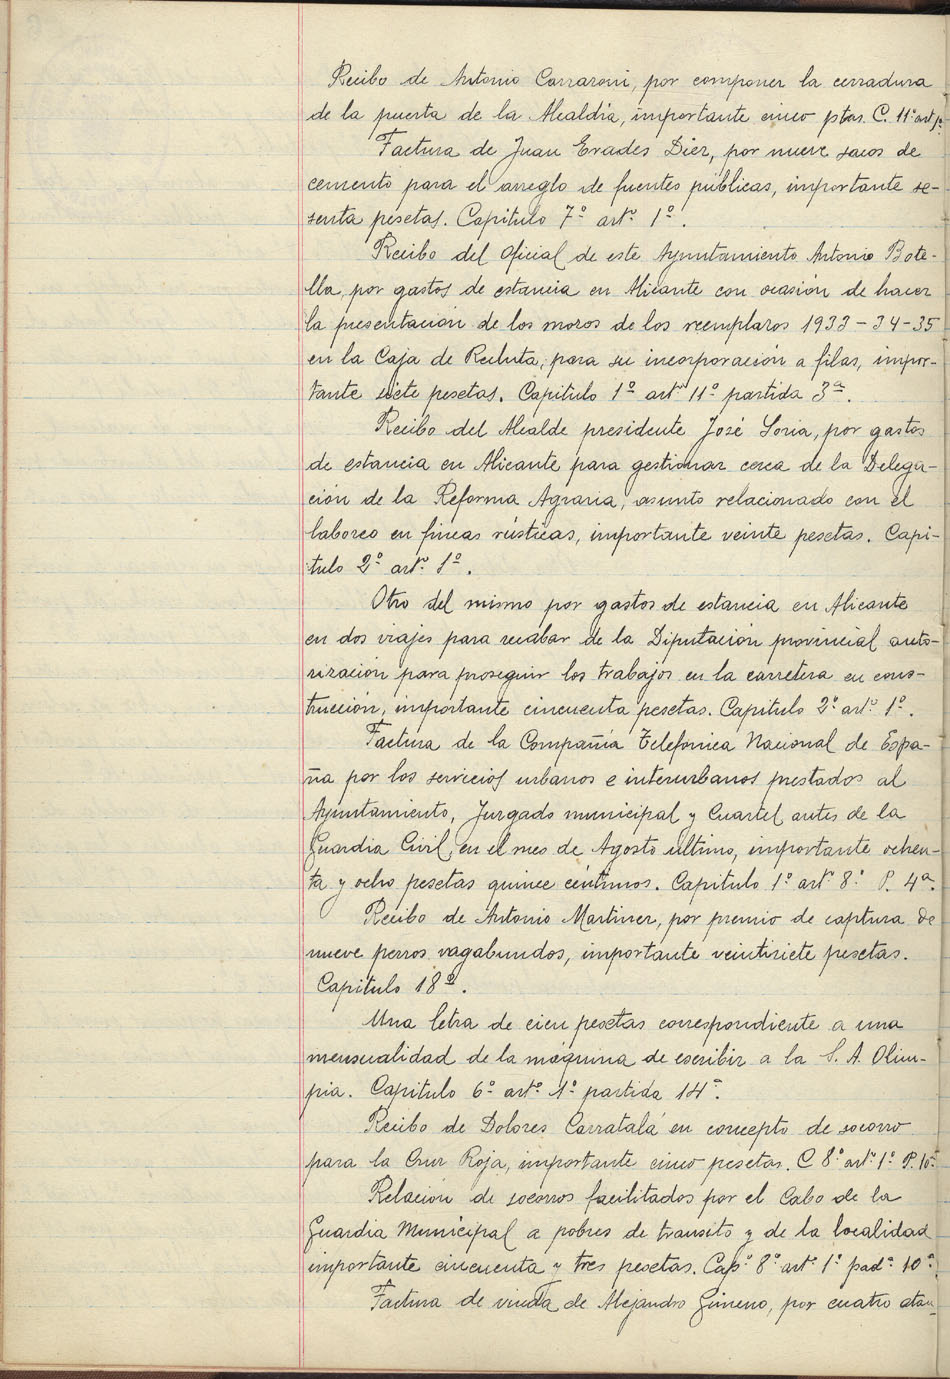 Recibo de Antonio Carraroni, por componer la cerradura
de la puerta de la Alcaldía, importante cinco ptas. C. 11º art 1º
Factura de Juan Erades Diez, por nueve sacos de
cemento para el arreglo de fuentes públicas, importante se-
senta pesetas. Capítulo 7º artº 1º.
Recibo del oficial de este Ayuntamiento Antonio Bote-
lla, por gastos de estancia en Alicante con ocasión de hacer
la presentación de los mozos de los reemplazos 1933-34-35
en la Caja de Recluta, para su incorporación a filas, impor-
tante siete pesetas. Capítulo 1º artº 11º partida 3ª.
Recibo del Alcalde presidente José Soria, por gastos
de estancia en Alicante para gestionar cerca de la Delega-
ción de la Reforma Agraria, asunto relacionado con el
laboreo en fincas rústicas, importante veinte pesetas. Capí-
tulo 2º artº 1º.
Otro del mismo por gastos de estancia en Alicante
en dos viajes para recabar de la Diputación provincial auto-
rización para proseguir los trabajos en la carretera en cons-
trucción, importante cincuenta pesetas. Capítulo 2º artº 1º.
Factura de la Compañía Telefónica Nacional de Espa-
ña por los servicios urbanos e interurbanos prestados al
Ayuntamiento, Juzgado municipal y Cuartel antes de la
Guardia Civil, en el mes de Agosto último, importante ochen-
ta y ocho pesetas quince céntimos. Capítulo 1º artº 8º P. 4ª.
Recibo de Antonio Martinez, por premio de captura de
nueve perros vagabundos, importante veintisiete pesetas.
Capítulo 18º.
Una letra de cien pesetas correspondiente a una
mensualidad de la máquina de escribir a la S. A. Olim-
pia. Capítulo 6º artº 1º partida 14ª.
Recibo de Dolores Carratalá en concepto de socorro
para la Cruz Roja, importante cinco pesetas. C 8º artº 1º P. 10ª
Relación de socorros facilitados por el Cabo de la
Guardia Municipal a pobres de transito y de la localidad
importante cincuenta y tres pesetas. Capº 8º artº 1º padª 10ª.
Factura de viuda de Alejandro Gimeno, por cuatro